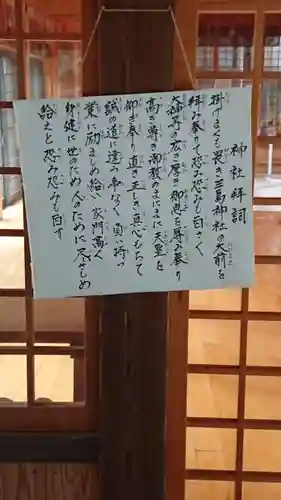 神社拝詞
掛けまくも畏き三島神社の大前を
拝み奉りて恐み恐みも白さく
大神等の広き厚き御恵を辱み奉り
高き尊き神教のまにまに天皇を
仰ぎ奉り直き正しき真心もちて
誠の道に違う事なく負い持つ
業に励ましめ給い家門高く
身健に世のため人のために尽さしめ
給えと恐み恐みも白す